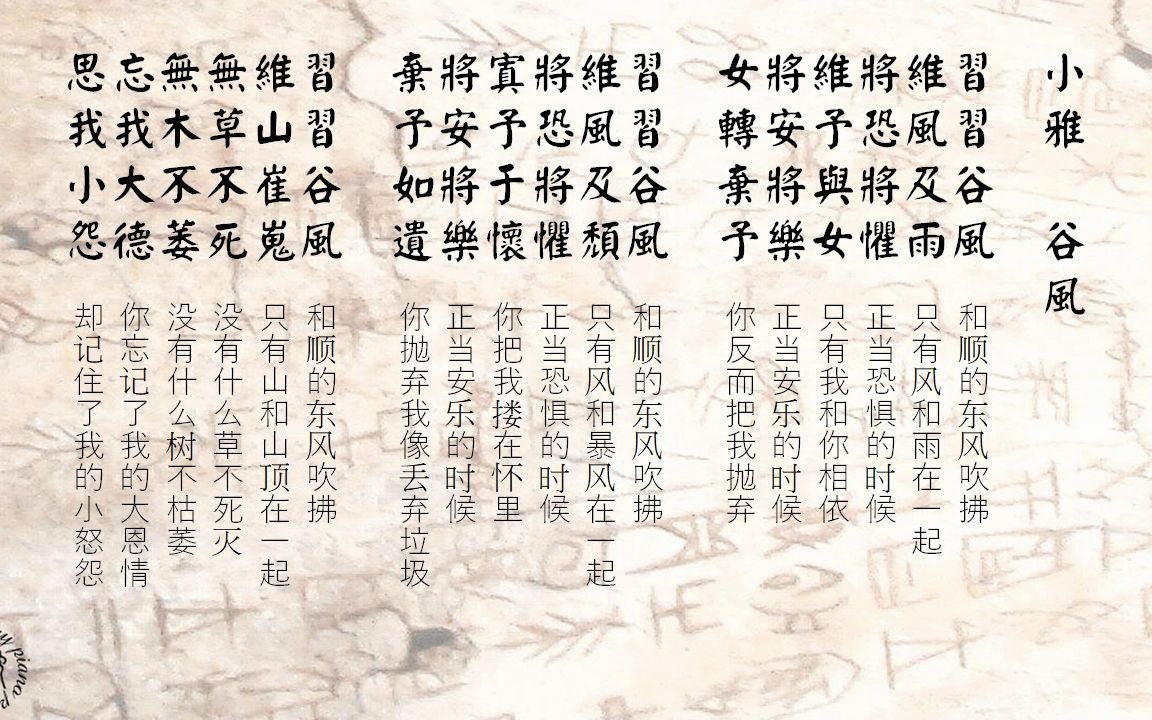 小雅 谷風
習習谷風
維風及雨
將恐將懼
維予與女
將安將樂
女轉棄予
和顺的东风吹拂
只有风和雨在一起
正当恐惧的时候
只有我和你相依
正当安乐的时候
你反而把我抛弃
習習谷風
維風及頹
將恐將懼
寘予于懷
將安將樂
棄予如遺
和顺的东风吹拂
只有风和暴风在一起
正当恐惧的时候
你把我搂在怀里
正当安乐的时候
你抛弃我像丢弃垃圾
習習谷風
維山崔嵬
無草不死
無木不萎
忘我大德
思我小怨
和顺的东风吹拂
只有山和山顶在一起
没有什么草不死灭
没有什么树不枯萎
你忘记了我的大恩情
却记住了我的小怒怨
piano